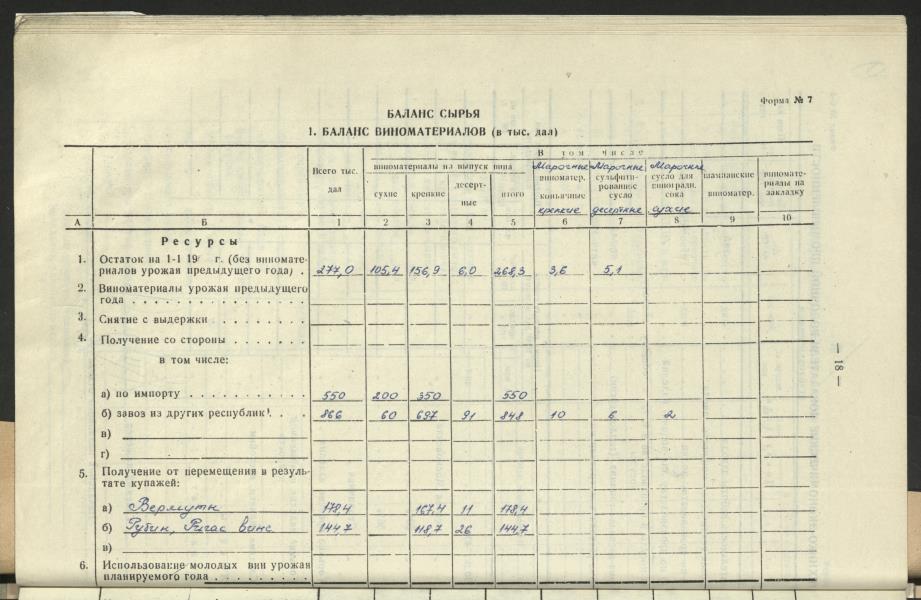 Форма № 7
БАЛАНС СЫРЬЯ
1. БАЛАНС ВИНОМАТЕРИАЛОВ (в тыс. дал)
В том числе
Всего тыс. дал
виноматериалы на выпуск вина
сухие
крепкие
десерт-
ные
итого
Марочные
виноматер.
коньячные
крепкие
Марочные
сульфити-
рованное
сусло
десертные
Марочные
сусло для
виноградн.
сока
сухие
шампанские
виноматер.
виномате-
риалы на
закладку
А Б 1 2 3 4 5 6 7 8 9 10
Ресурсы
1. Остаток на 1-1 19 г. (без виномате-
риалов урожая предыдущего года) . 277,0 105,4 156,9 6,0 268,3 3,6 5,1
2. Виноматериалы урожая предыдущего
года . . . . . . . . . . . . . . .
3. Снятие с выдержки . . . . . . .
4. Получение со стороны . . . . . .
в том числе:
а) по импорту . . . . . . . . . . 550 200 350 550
б) завоз из других республик . . . 866 60 697 91 848 10 6 2
в)
г)
5. Получение от перемещения в резуль-
тате купажей:
а) Вермуты 178,4 167,4 11 178,4
б) Рубин, Ригас винс 144,7 118,7 26 144,7
в)
6. Использование молодых вин урожая
планируемого года . . . . . . . . .
— 18 —